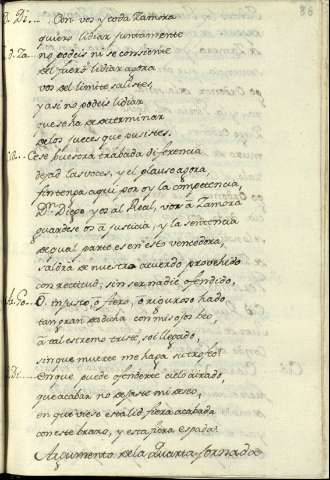 86
D. Di... Con vos y toda Zamora
quiero lidiar juntamente
no podeis ni se consiente
del fuero lidiar agora
vos del limite salistes,
y asi no podeis lidiar
que se ha de determinar
por los jueces que pusistes.
Cese vuestra trabada diferencia
dejad las voces, y el plauso agora
fenezca aqui por oy la competencia,
Dn. Diego y os al Real, vos à Zamora
guardese os à justicia, y la sentencia
de qual parte es en esto vencedora,
saldra de nuestro acuerdo provehido
con rectitud, sin ser nadie ofendido.
O injusto, ò fiero, ò riguroso hado
tan gran desdicha con mis ojos veo,
à tal estremo triste, soi llegado,
sin que muerte me haga su trofeo!
En que pude ofenderte cielo airado,
que acabar no dejaste mi deseo,
en que viese esta lid, fiera acabada
con este brazo, y esta fiera espada!
Argumento de la Quarta Jornada